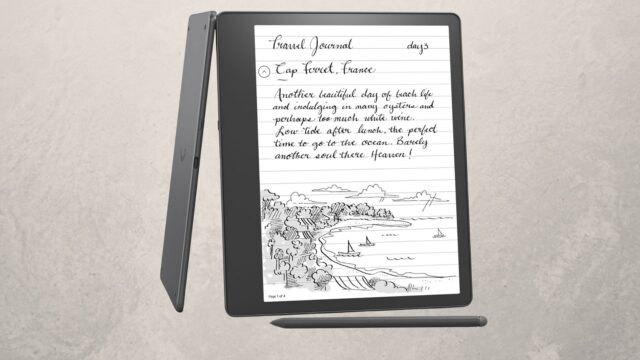 Travel Journal days
Cap Ferret, France
Another beautiful day of beach life
and indulging in many oysters and
perhaps too much white wine.
Low tide after lunch, the perfect
time to go to the ocean. Barely
another soul there Heaven!
Page 1 of 4